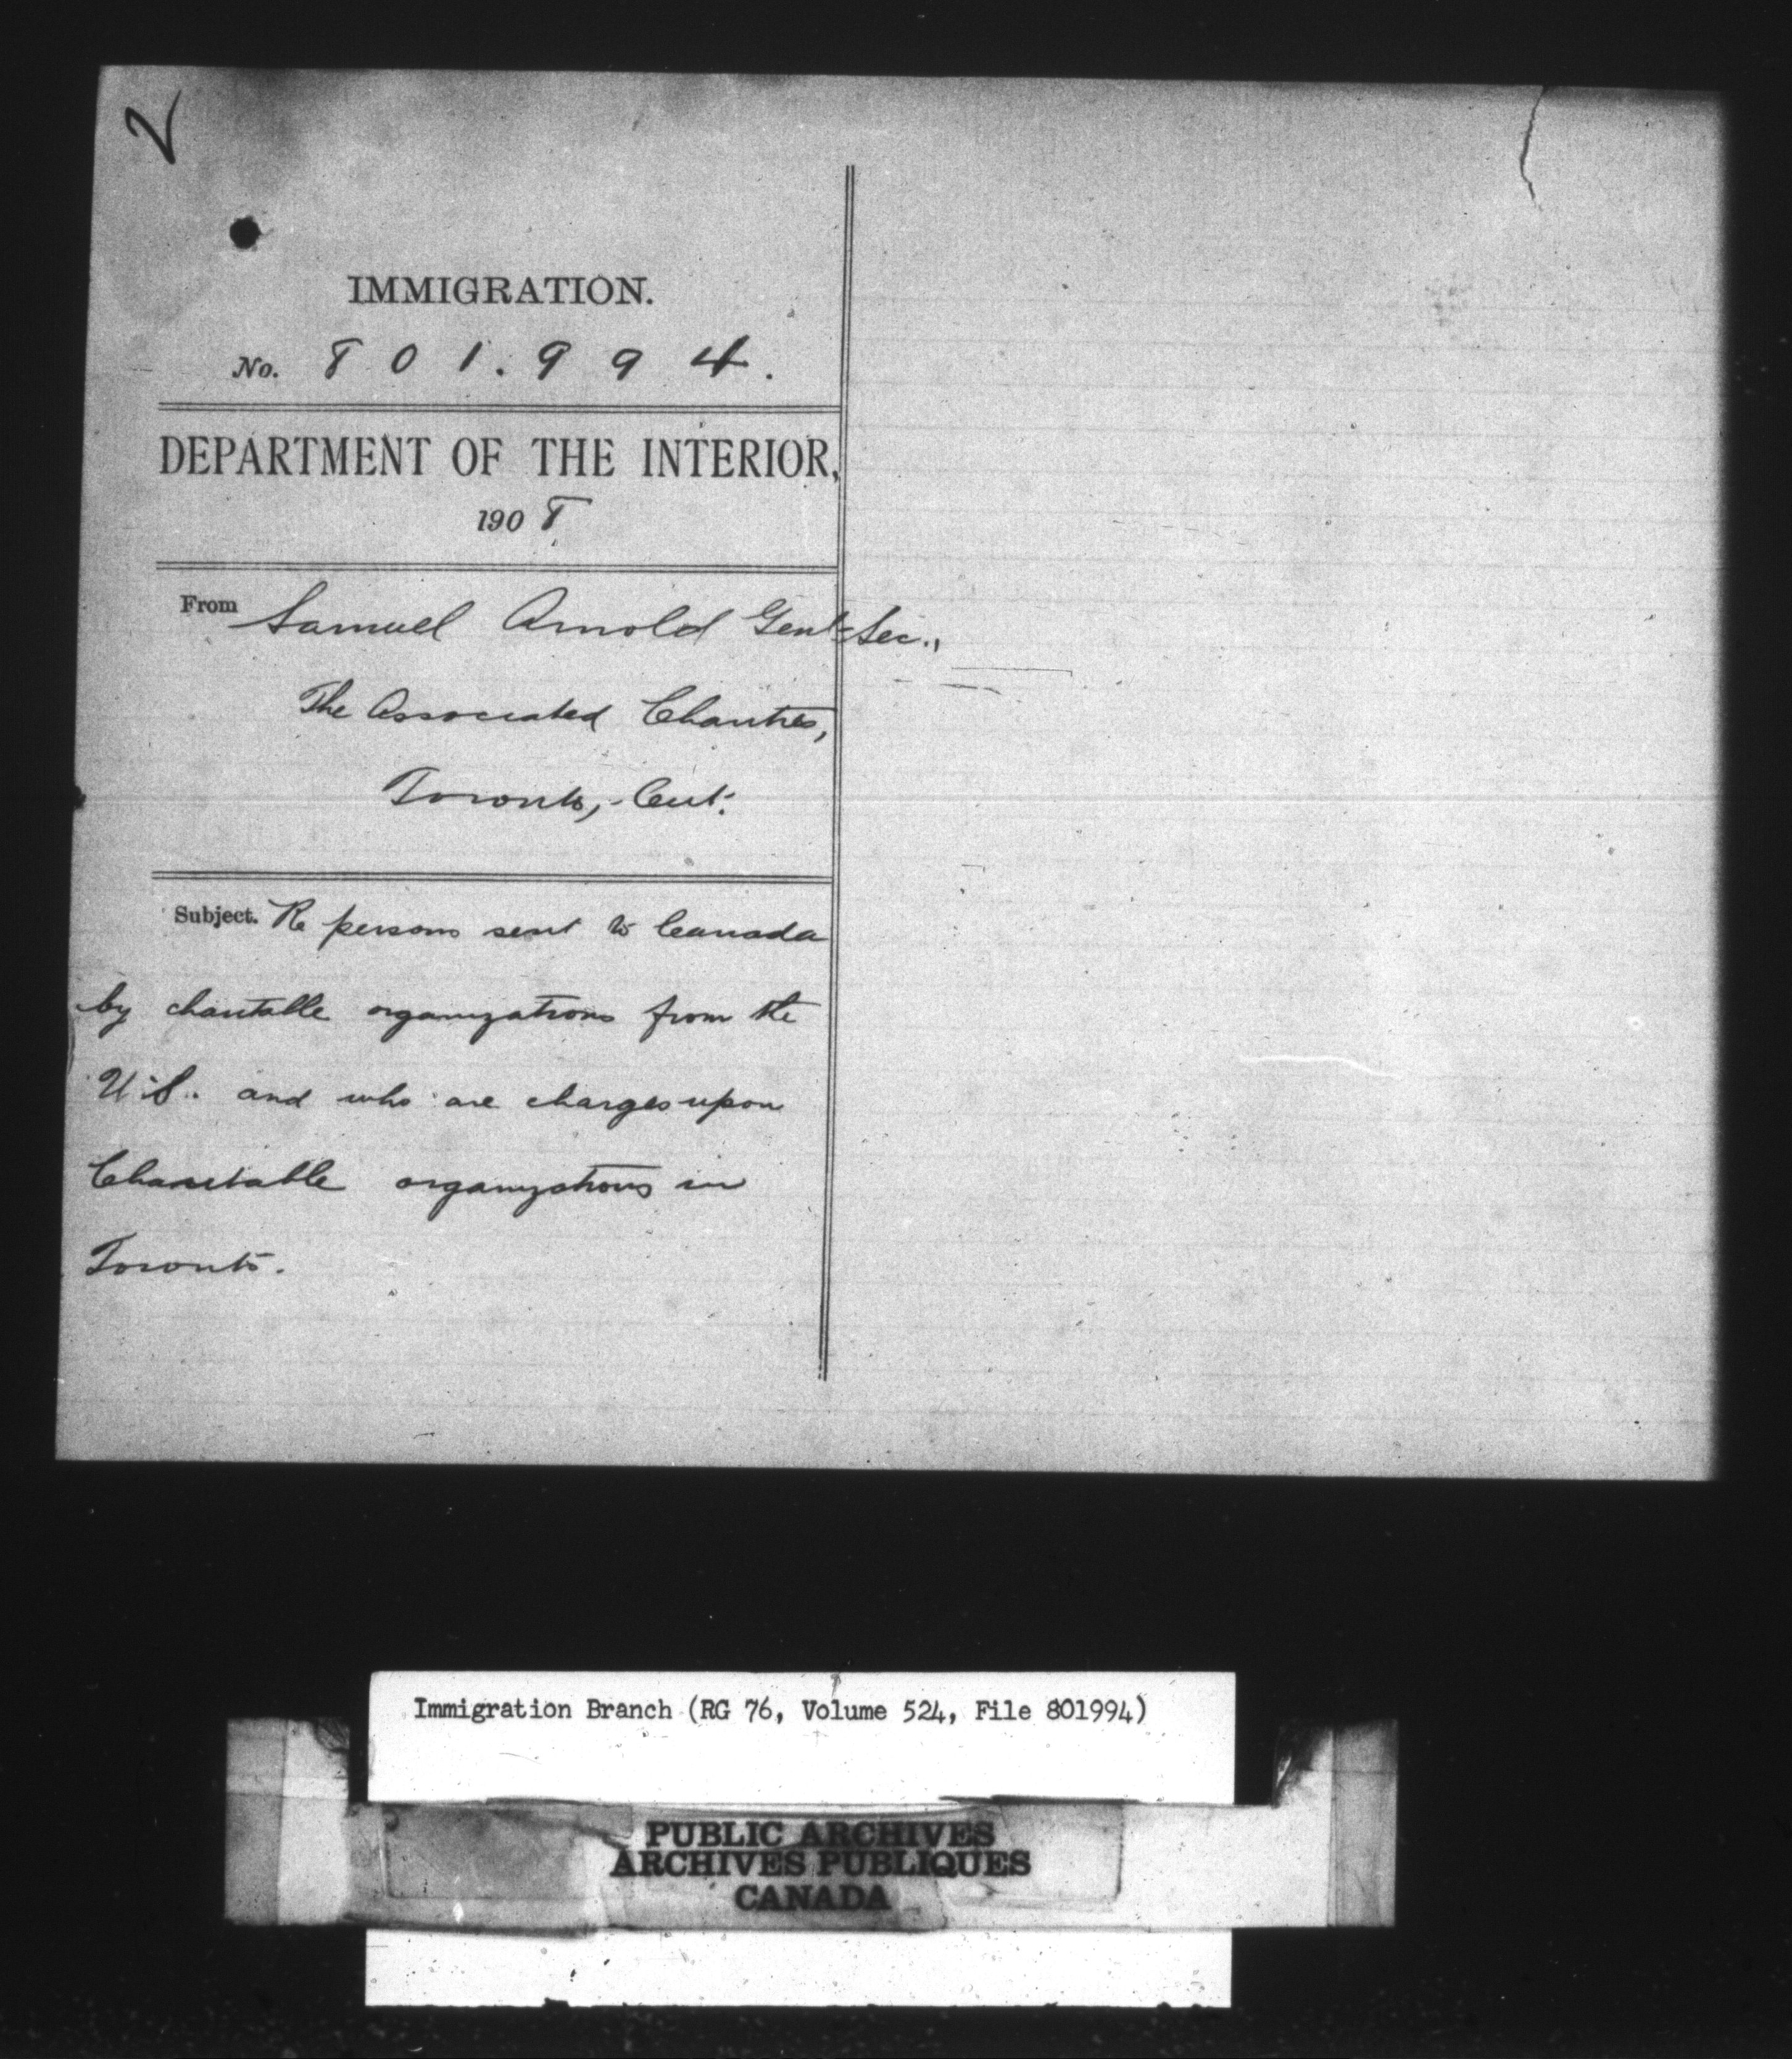 2
IMMIGRATION.
No. 801.994.
DEPARTMENT OF THE INTERIOR,
1908
From Samuel Arnold Genl Sec.,
The Associated Charities,
Toronto, Ont.
Subject. Re persons sent to Canada
by charitable organizations from the
U.S. and who are charges upon
Charitable organizations in
Toronto.
Immigration Branch (RG 76, Volume 524, File 801994)
PUBLIC ARCHIVES
ARCHIVES PUBLIQUES
CANADA